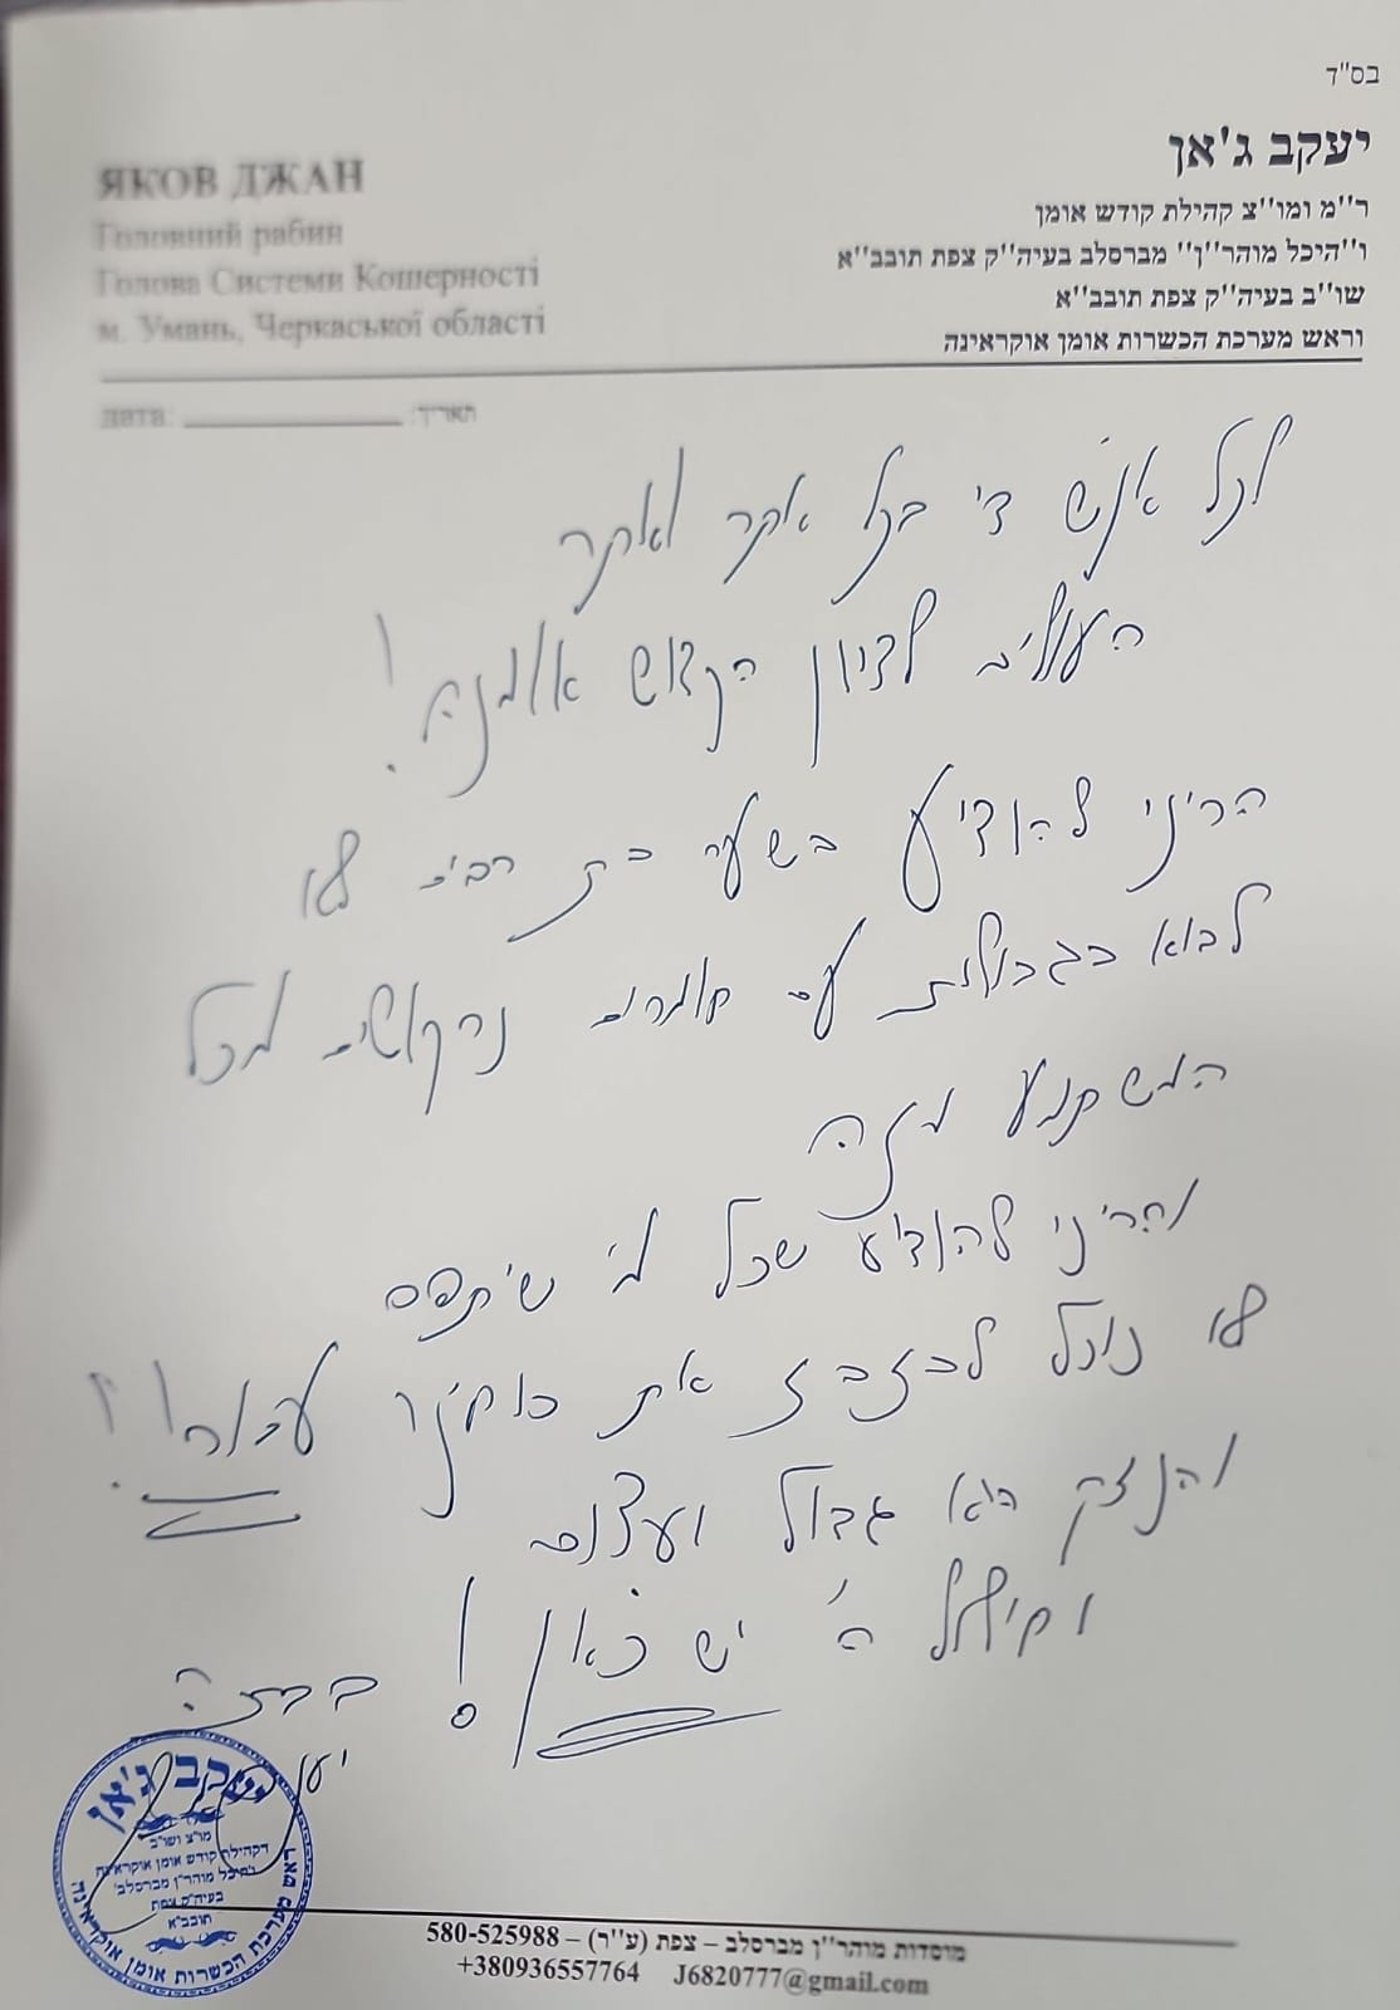 בס"ד
יעקב ג'אן
ר''מ ומו''צ קהילת קודש אומן
ו''היכל מוהר''ן'' מברסלב בעיה''ק צפת תובב''א
שו''ב בעיה''ק צפת תובב''א
וראש מערכת הכשרות אומן אוקראינה
ЯКОВ ДЖАН
Головний рабин
Голова Системи Кошерності
м. Умань, Черкаської області
дата: תאריך:
לכל אנ"ש די בכל אתר ואתר
העולים לציון הקדוש אומנה!
הריני להודיע בשער בת רבים לא
לבוא בגבולות עם חומרים נרקוטים מכל
המשתמע מזה
והריני להודיע שכל מי שיתפס
לא נוכל לבזבז את כוחינו עבורו!
והנזק הוא גדול ועצום
וחילול ה' יש כאן! בברכה
יעקב ג'אן
מו"צ ושו"ב
דקהילת קודש אומן אוקראינה
ו'היכל מוהר"ן מברסלב'
בעיה"ק צפת
תובב"א
ראש מערכת הכשרות אומן אוקראינה
מוסדות מוהר''ן מברסלב – צפת (ע''ר) – 580-525988
+380936557764 J6820777@gmail.com